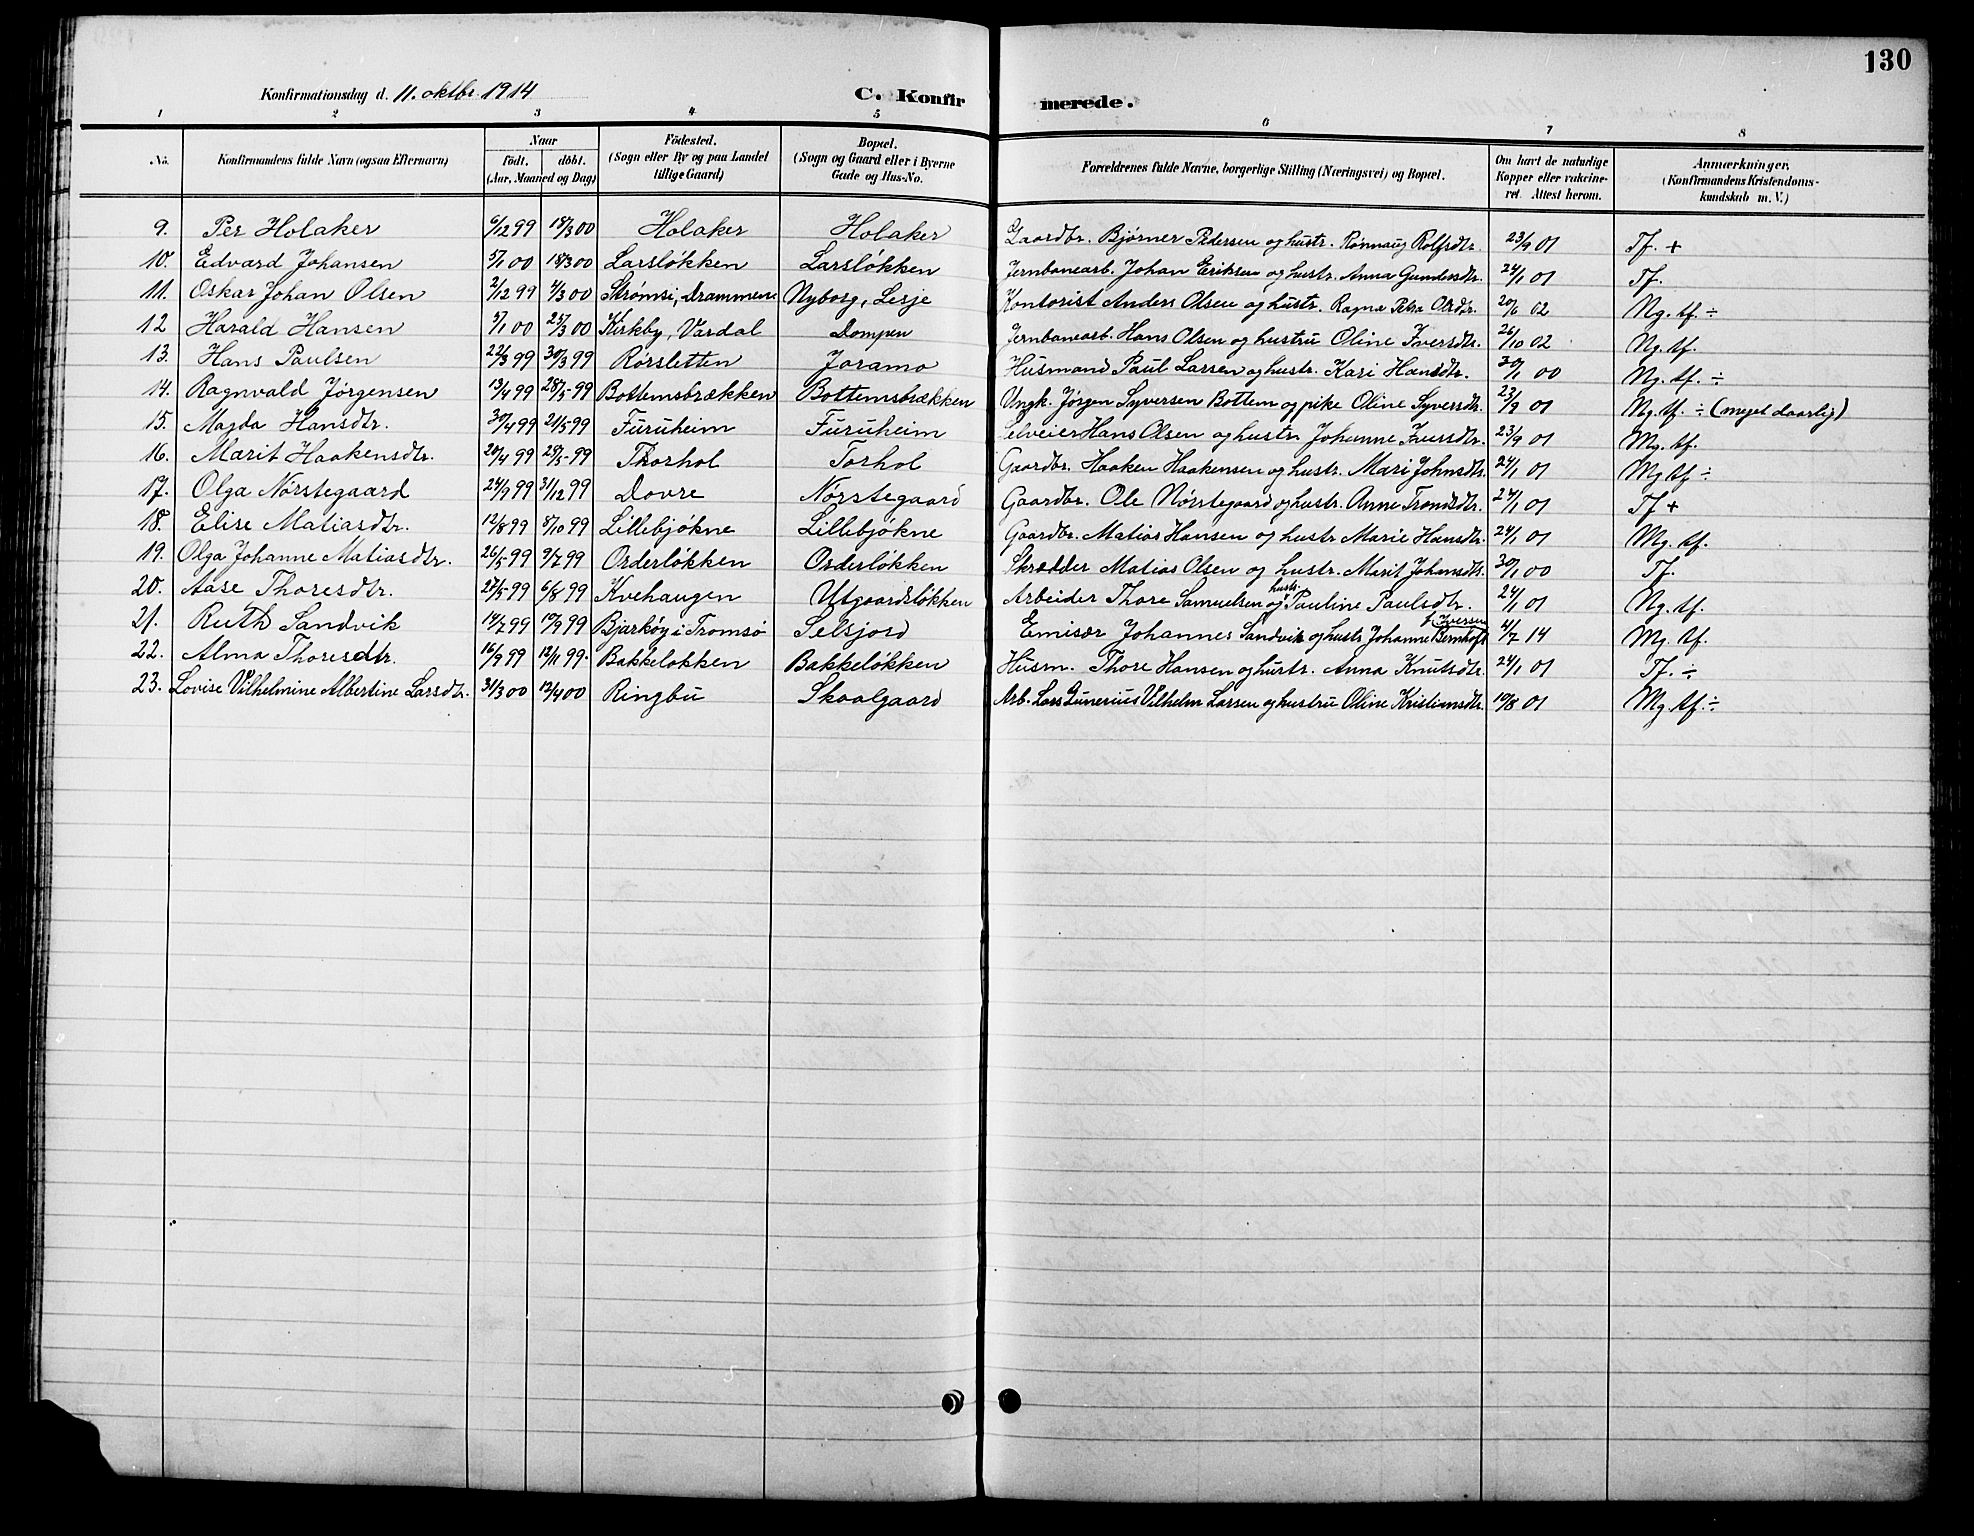 130
Konfirmationsdag d. 11. oktbr. 1914
C. Konfirmerede.
1 2 3 4 5 6 7 8
No. | Konfirmandens fulde Navn (ogsaa Efternavn) | Naar født. døbt. (Aar, Maaned og Dag) | Fødested. (Sogn eller By og paa Landet tillige Gaard) | Bopæl. (Sogn og Gaard eller i Byerne Gade og Hus-No. | Forældrenes fulde Navne, borgerlige Stilling (Næringsvei) og Bopæl. | Om havt de naturlige Kopper eller vakcineret. Attest herom. | Anmærkninger. (Konfirmandens Kristendomskundskab m. V.)
9. Per Holaker 6/12 99 18/3 00 Holaker Holaker Gaardbr. Bjørner Pedersen og hustr. Rønnaug Rolfsdtr. 23/9 01 Tf. +
10. Edvard Johansen 5/1 00 18/3 00 Larsløkken Larsløkken Jernbanearb. Johan Eriksen og hustr. Anna Gundersdtr. 24/1 01 Tf.
11. Oskar Johan Olsen 2/12 99 4/3 00 Strømsø, Drammen Nyborg, Lesje Kontorist Anders Olsen og hustr. Ragna Petra Olsdtr. 20/6 02 Mg. tf. ÷
12 Harald Hansen 5/1 00 25/3 00 Kirkby, Vardal Dompen Jernbanearb. Hans Olsen og hustru Oline Iversdtr. 26/10 02 Mg. tf.
13. Hans Paulsen 22/3 99 30/3 99 Rørsletten Joramo Husmand Paul Larsen og hustr. Kari Hansdtr. 30/1 00 Mg. tf. ÷
14. Ragnvald Jørgensen 13/4 99 28/5 99 Bottemsbrækken Bottemsbrækken Ungk. Jørgen Syversen Bottem og pike Oline Syversdtr. 23/9 01 Mg. tf. ÷ (meget daarlig)
15. Magda Hansdtr. 30/4 99 21/5 99 Furuheim Furuheim Selveier Hans Olsen og hustr. Johanne Iversdtr. 23/9 01 Mg. tf.
16. Marit Haakensdtr. 20/4 99 29/5 99 Thorhol Torhol Gaardbr. Haaken Haakensen og hustr. Mari Johnsdtr. 24/1 01 Mg tf ÷
17. Olga Nørstegaard 24/9 99 31/12 99 Dovre Nørstegaard Gaardbr. Ole Nørstegaard og hustr. Anne Trondsdtr. 24/1 01 Tf +
18. Elise Matiasdtr. 12/8 99 8/10 99 Lillebjøkne Lillebjøkne Gaardbr. Matias Hansen og hustr Marie Hansdtr. 24/1 01 Mg. tf.
19. Olga Johanne Matiasdtr. 26/5 99 9/7 99 Orderløkken Orderløkken Skrædder Matias Olsen og hustr. Marit Johansdtr. 30/1 00 Tf.
20. Aase Thoresdtr. 27/5 99 6/8 99 Kvehaugen Utgaardsløkken Arbeider Thore Samuelsen og hustr. Pauline Paulsdtr. 24/1 01 Mg. tf.
21. Ruth Sandvik 14/7 99 10/9 99 Bjarkøy i Tromsø Selsjord Emisær Johannes Sandvik og hustr Johanne Bernhoft f. Iversen 4/7 14 Mg. tf.
22. Alma Thoresdtr. 16/9 99 12/11 99. Bakkeløkken Bakkeløkken Husm. Thore Hansen og hustr. Anna Knutsdtr. 24/1 01 Tf. ÷
23. Lovise Vilhelmine Albertine Larsdtr. 31/3 00 12/4 00 Ringbu Skaalgaard Arb. Lars Gunerius Vilhelm Larsen og hustru Oline Kristiansdtr. 10/8 01 Mg. tf. ÷